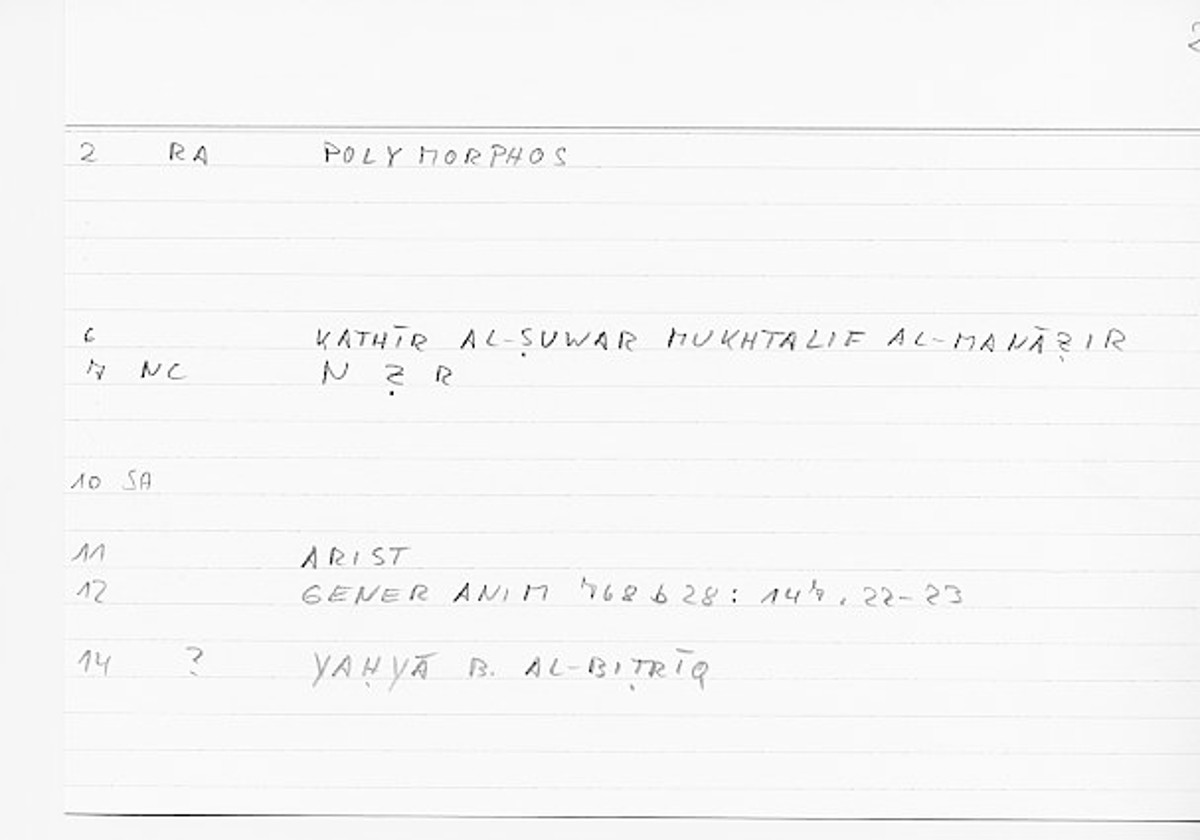 2
2 RA POLYMORPHOS
6 KATHĪR AL-ṢUWAR MUKHTALIF AL-MANĀẒIR
7 NC N Ẓ R
10 SA
11 ARIST
12 GENER ANIM 768 b 28 : 147, 22-23
14 ? YAḤYĀ B. AL-BIṬRĪQ